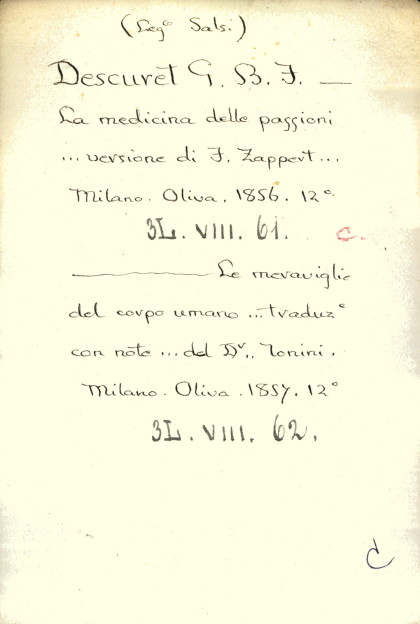 (Leg.º Sals.)
Descuret G. B. F. —
La medicina delle passioni
... versione di F. Zappert...
Milano. Oliva. 1856. 12º.
3L. VIII. 61. C.
——— Le meraviglie
del corpo umano ... traduz.e
con note ... del Dr. Tonini.
Milano. Oliva. 1857. 12º
3L. VIII. 62.